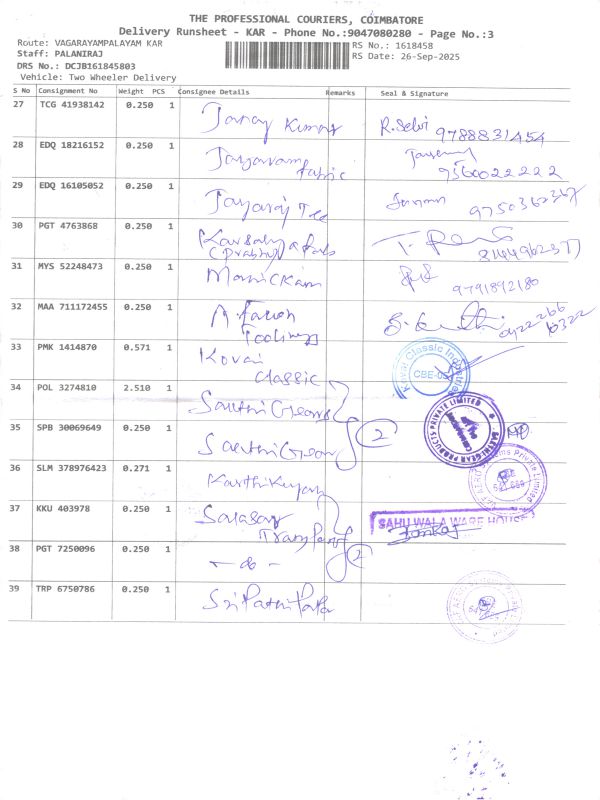 THE PROFESSIONAL COURIERS, COIMBATORE
Delivery Runsheet - KAR - Phone No.:9047080280 - Page No.:3
Route: VAGARAYAMPALAYAM KAR
RS No.: 1618458
Staff: PALANIRAJ
RS Date: 26-Sep-2025
DRS No.: DCJB161845803
Vehicle: Two Wheeler Delivery
S No Consignment No Weight PCS Consignee Details Remarks Seal & Signature
27 TCG 41938142 0.250 1 Kumar R.Selvi 9788831454
28 EDQ 18216152 0.250 1 Jayaram Fabric 9560022222
29 EDQ 16105052 0.250 1 Jayaraj 9750362367
30 PGT 4763868 0.250 1
31 MYS 52248473 0.250 1 Manickam 9791892180
32 MAA 711172455 0.250 1 Toolings 0422266
33 PMK 1414870 0.571 1 Kovai Classic Kovai Classic Industries
CBE-
34 POL 3274810 2.510 1 Sakthi Gears
GEAR PRODUCTS PRIVATE LIMITED
35 SPB 30069649 0.250 1 Sakthi Gears 2
36 SLM 378976423 0.271 1 AERO Systems Private Limited
37 KKU 403978 0.250 1 Salasar Transport SAHUWALA WARE HOUSE
38 PGT 7250096 0.250 1 - do - 2
39 TRP 6750786 0.250 1 Sri